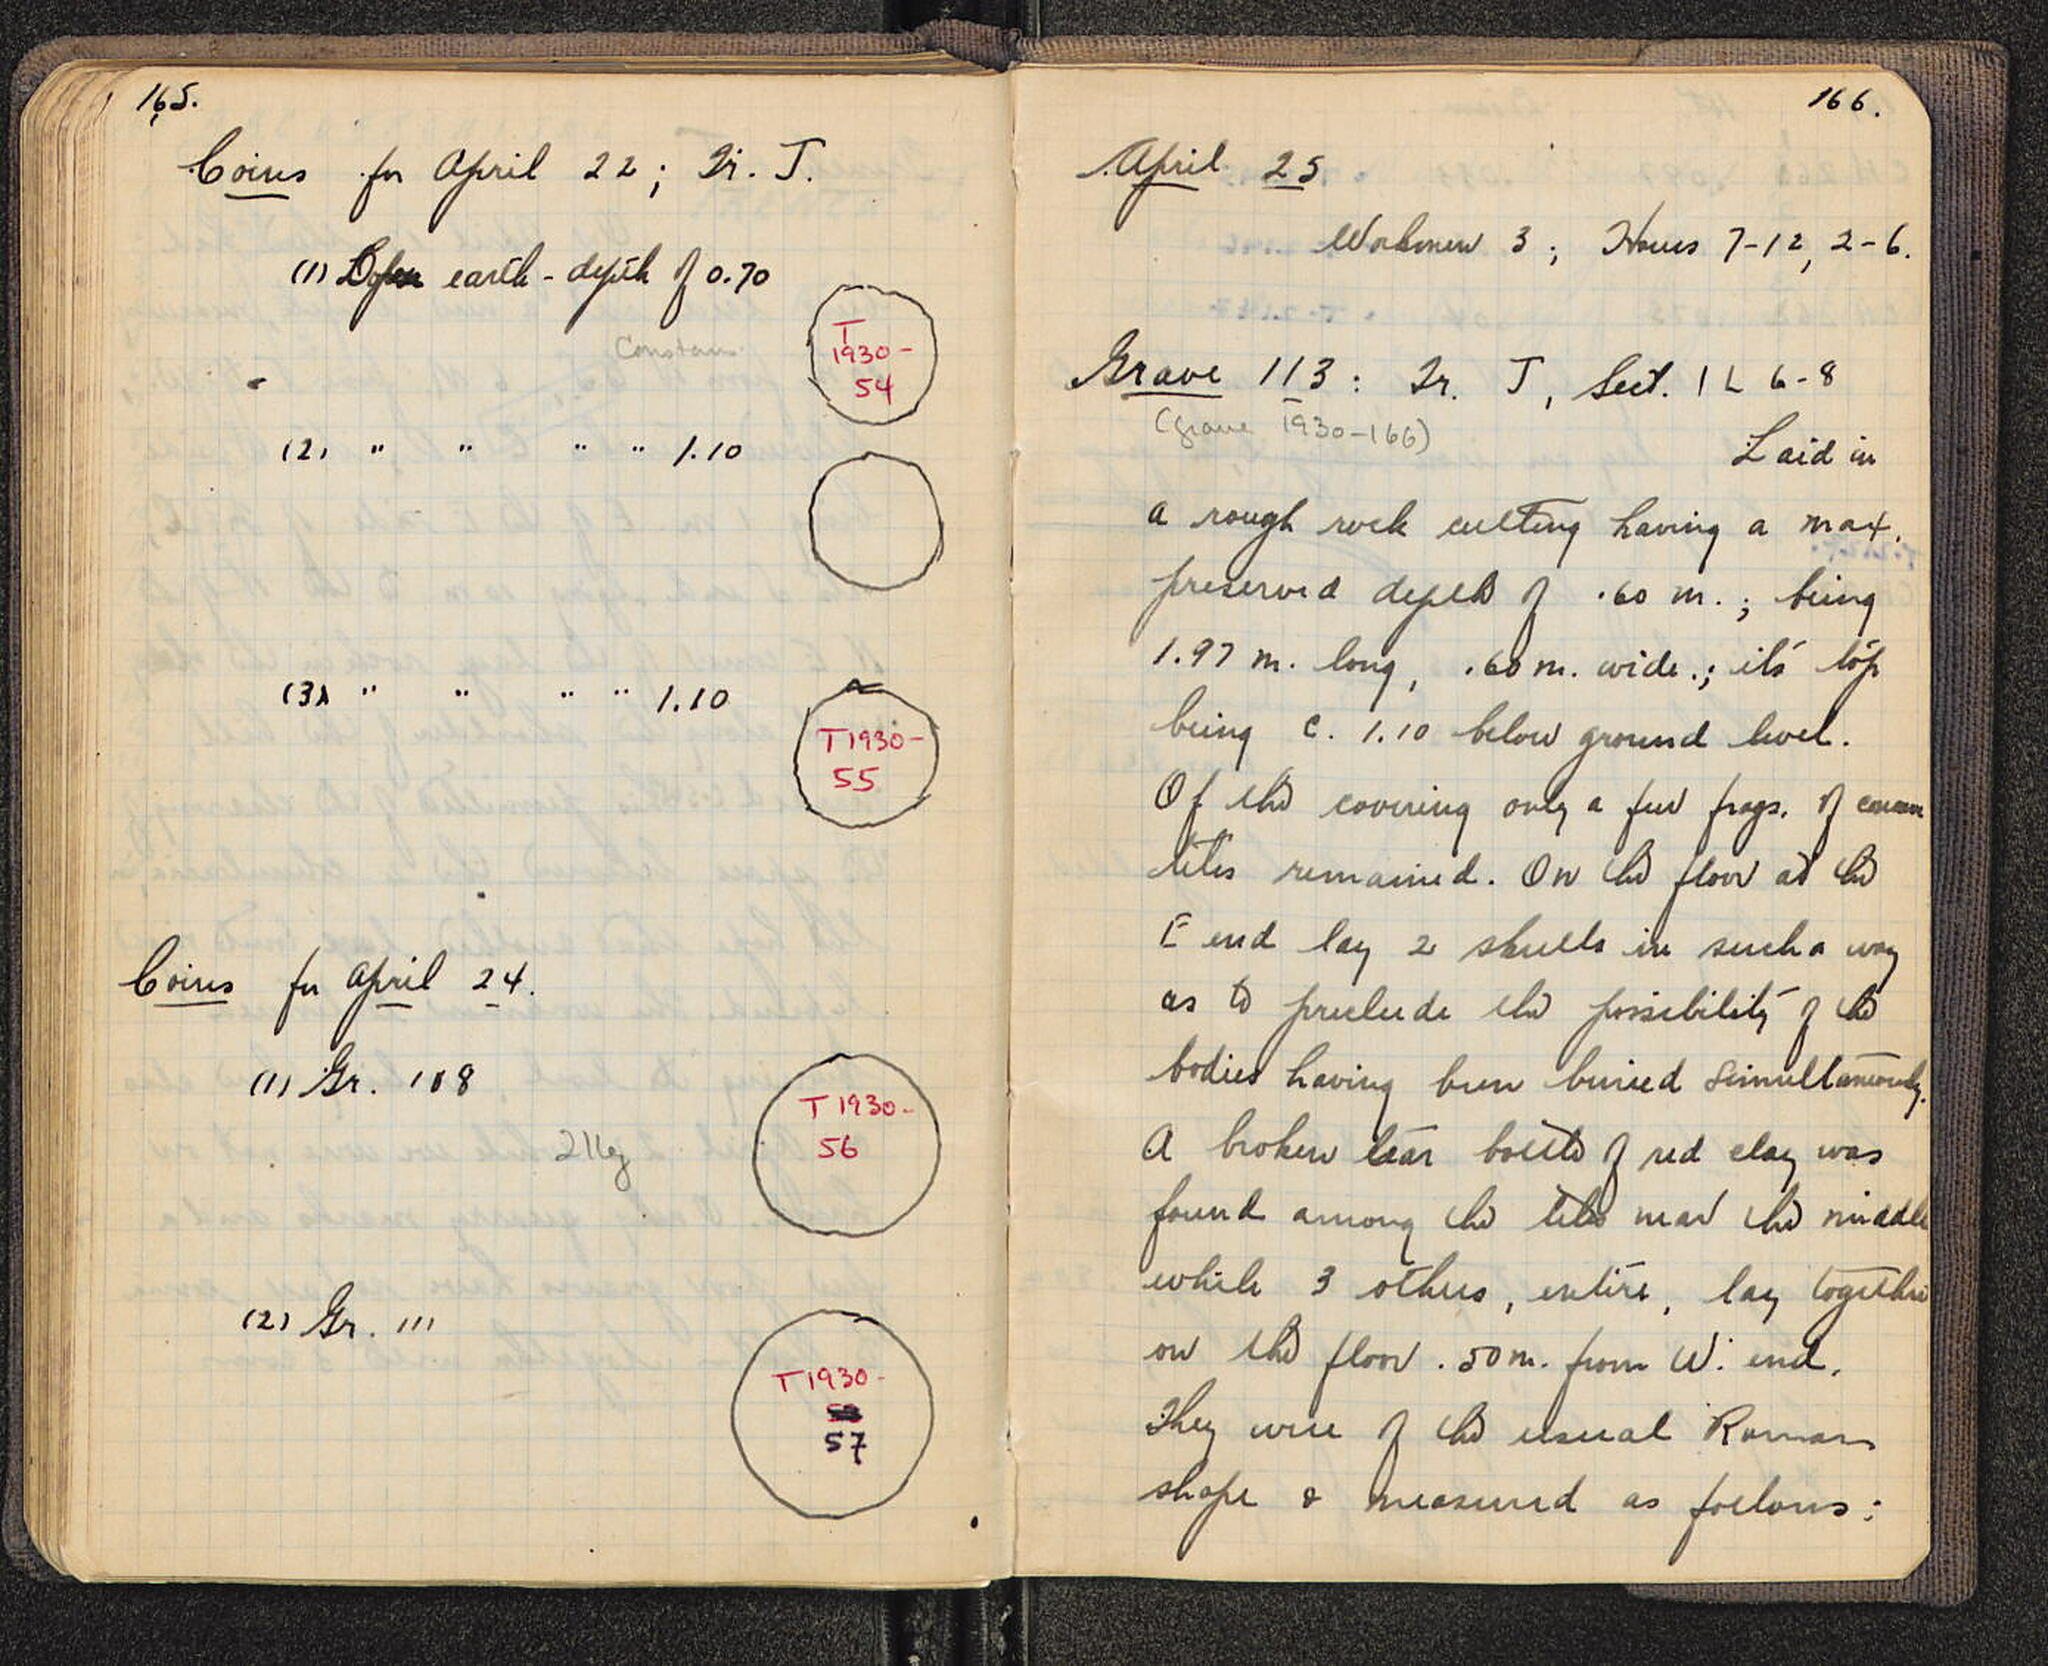 165.
Coins for April 22; Tr. J.
(1) Loose earth - depth of 0.70
T
1930-
54
Constans
(2) " " " " 1.10
(3) " " " " 1.10
T 1930-
55
Coins for April 24.
(1) Gr. 108
T 1930-
56
(2) Gr. 111
T 1930-
57
166.
April 25
Workmen 3; Hours 7-12, 2-6.
Grave 113: Tr. J, Sect. 1 L 6-8
(grave 1930-166)
Laid in
a rough rock cutting having a max.
preserved depth of .60 m.; being
1.97 m. long, .60 m. wide.; its top
being c. 1.10 below ground level.
Of the covering only a few frags. of
tiles remained. On the floor at the
E end lay 2 skulls in such a way
as to preclude the possibility of the
bodies having been buried simultaneously.
A broken tear bottle of red clay was
found among the tiles near the middle
while 3 others, entire, lay together
on the floor .50 m. from W. end.
They were of the usual Roman
shape & measured as follows: